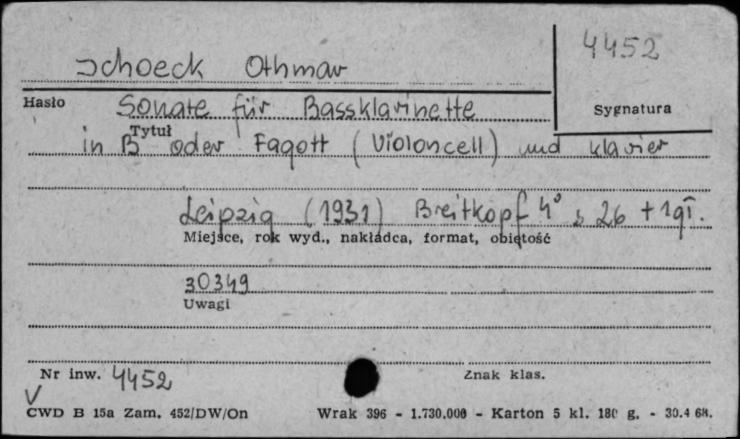 Schoeck Othmar
4452
Hasło
Sonate für Bassklarinette
Sygnatura
Tytuł
in B oder Fagott (Violoncell) und Klavier
Leipzig (1931) Breitkopf 4° s 26 + 1 gł.
Miejsce, rok wyd., nakładca, format, objętość
30349
Uwagi
Nr inw. 4452
Znak klas.
CWD B 15a Zam. 452/DW/On Wrak 396 - 1.730.000 - Karton 5 kl. 180 g. - 30.4 68.